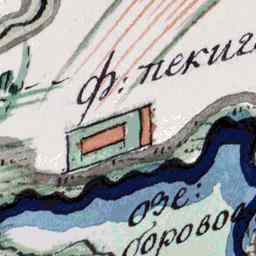 ф: пекиг
озе:
борово